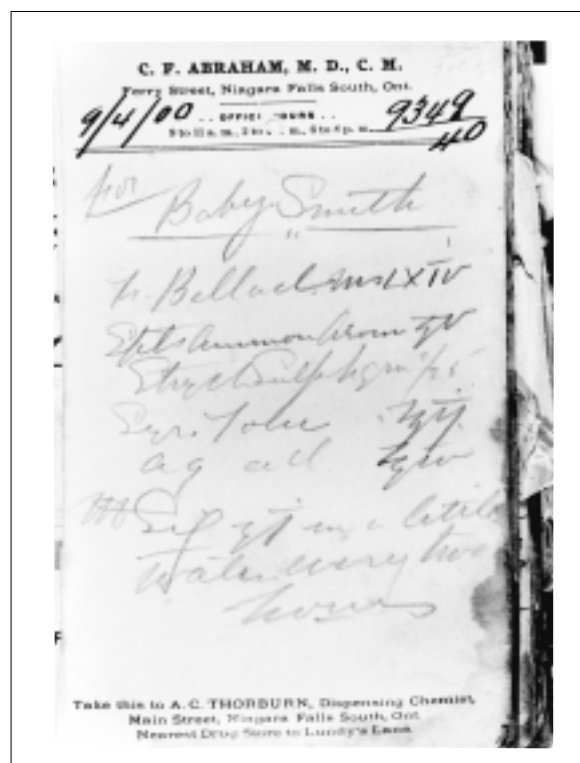 C. F. ABRAHAM, M. D., C. M.
Ferry Street, Niagara Falls South, Ont.
9/4/00 . . OFFICE HOURS . . 9349
9 to 11 a. m., 2 to m., 6 to 8 p. m. 40
for
Baby Smith
"
Tr. Bellad. ms LXIV
Spts Ammon Arom
Strych Sulph gr
Syr. Tolu
aq ad
Sig in a little
water every two
hours
Take this to A. C. THORBURN, Dispensing Chemist,
Main Street, Niagara Falls South, Ont.
Nearest Drug Store to Lundy's Lane.